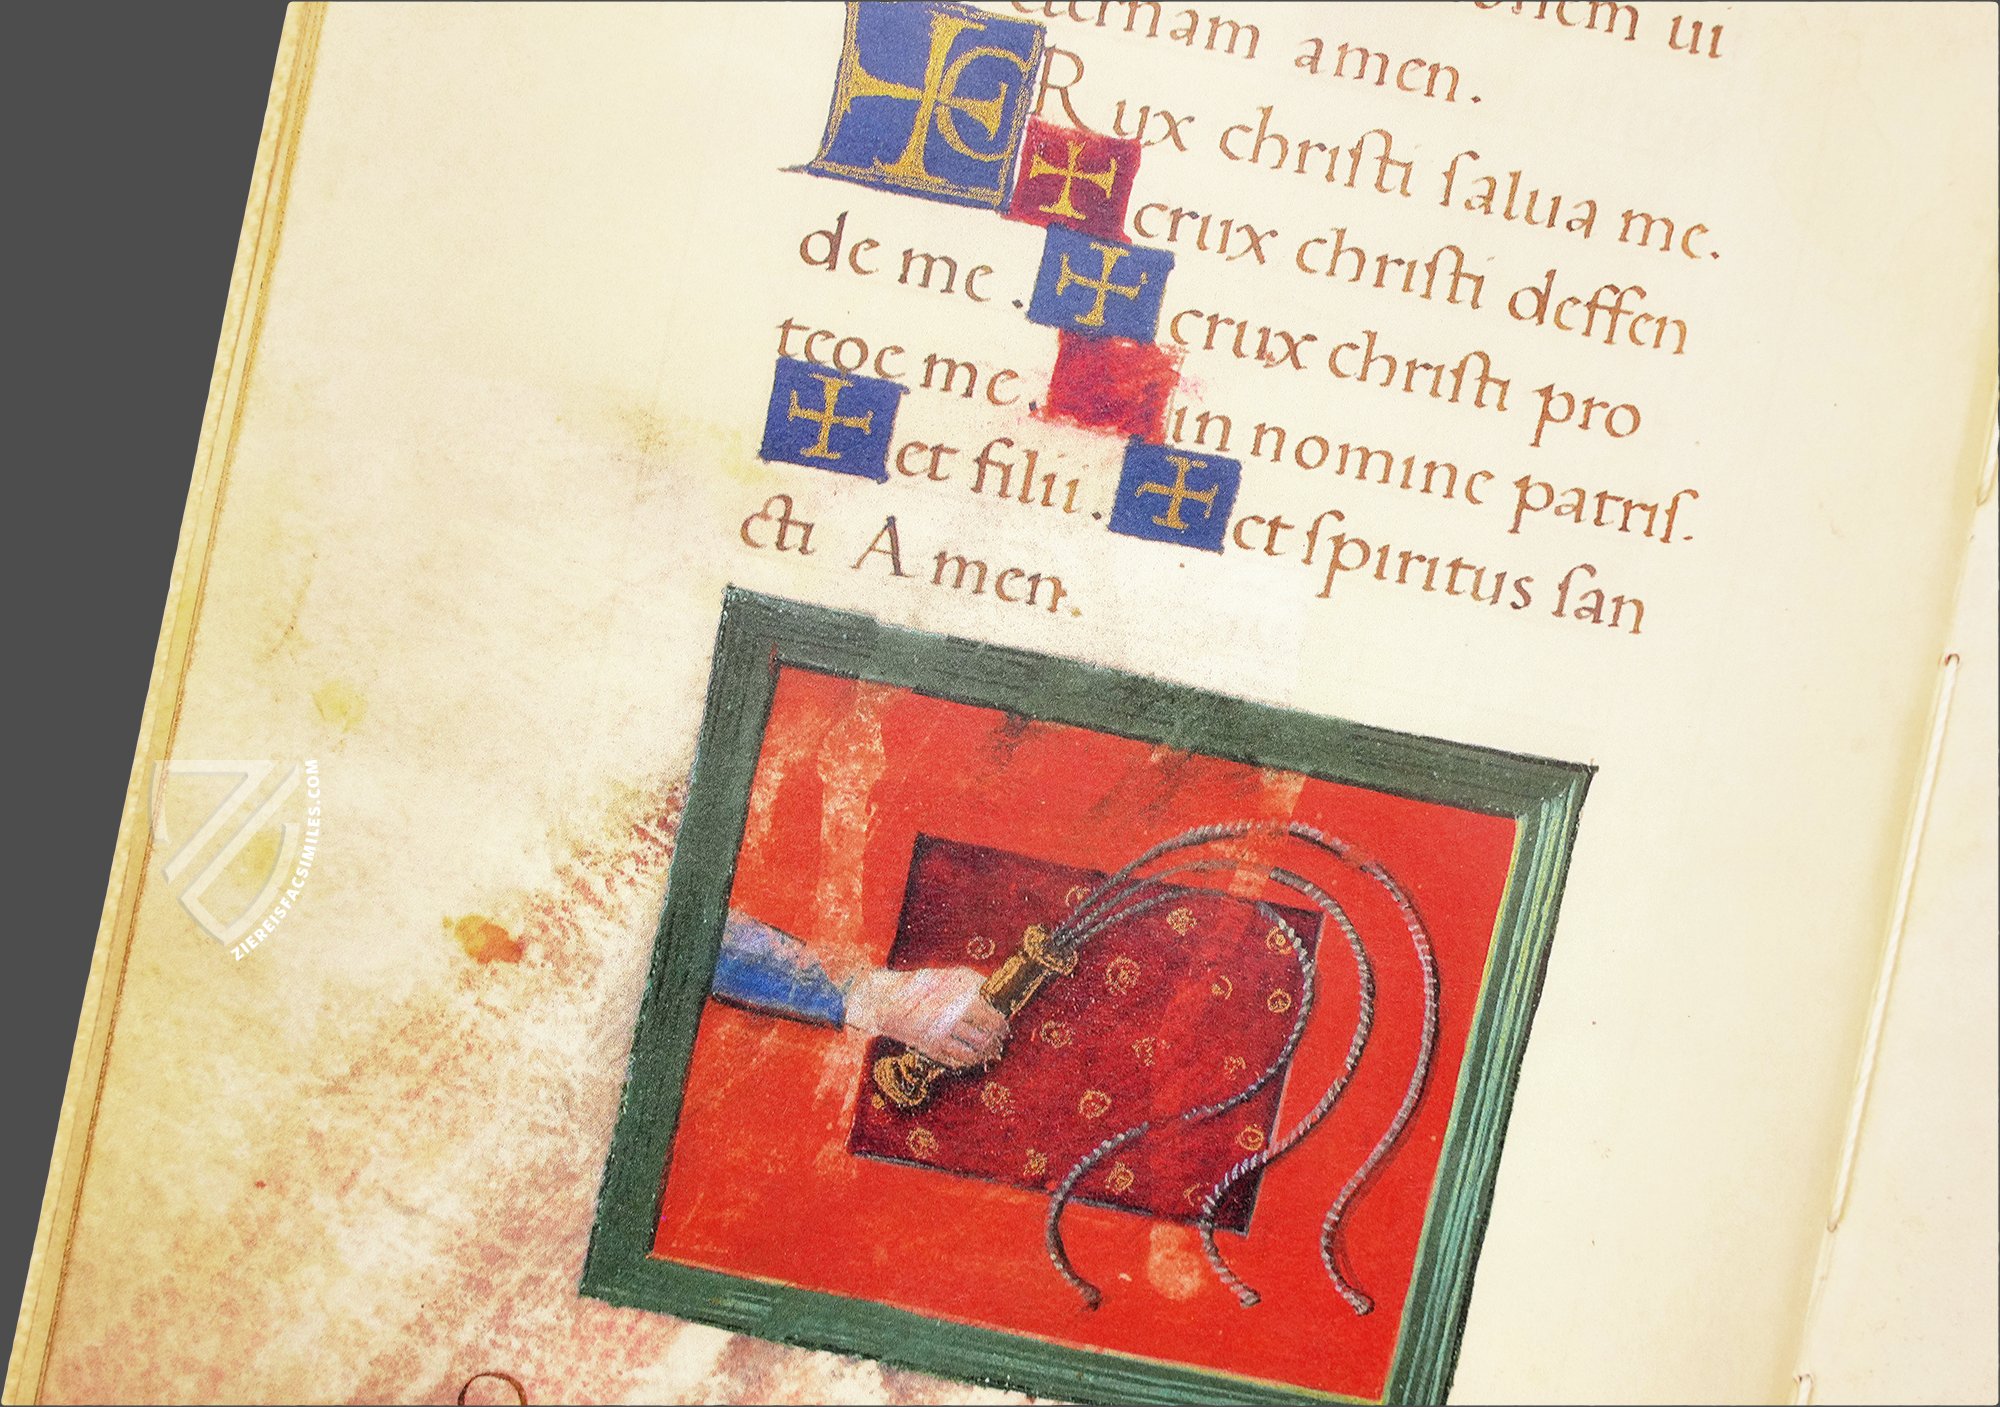 eternam amen.
CRux chriſti ſalua me.
✠ crux chriſti deffen
de me. ✠ crux chriſti pro
tege me. in nomine patriſ.
✠ et filii. ✠ et ſpiritus ſan
cti Amen.
ZIEREISFACSIMILES.COM